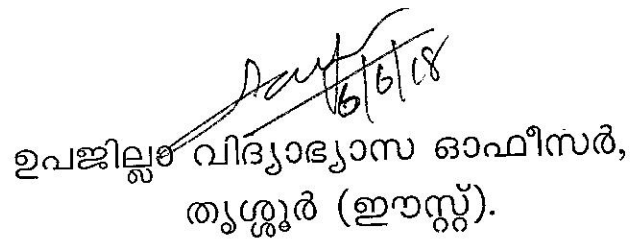 6/6/18
ഉപജില്ലാ വിദ്യാഭ്യാസ ഓഫീസർ,
തൃശ്ശൂർ (ഈസ്റ്റ്).